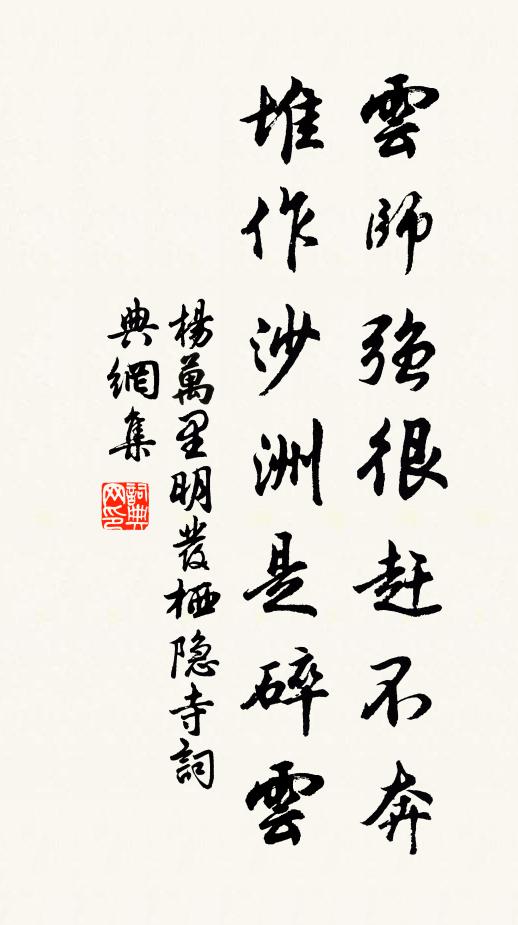 雲師強很赶不奔
堆作沙洲是碎雲
楊萬里明發栖隐寺詞
典網集
詞典網印